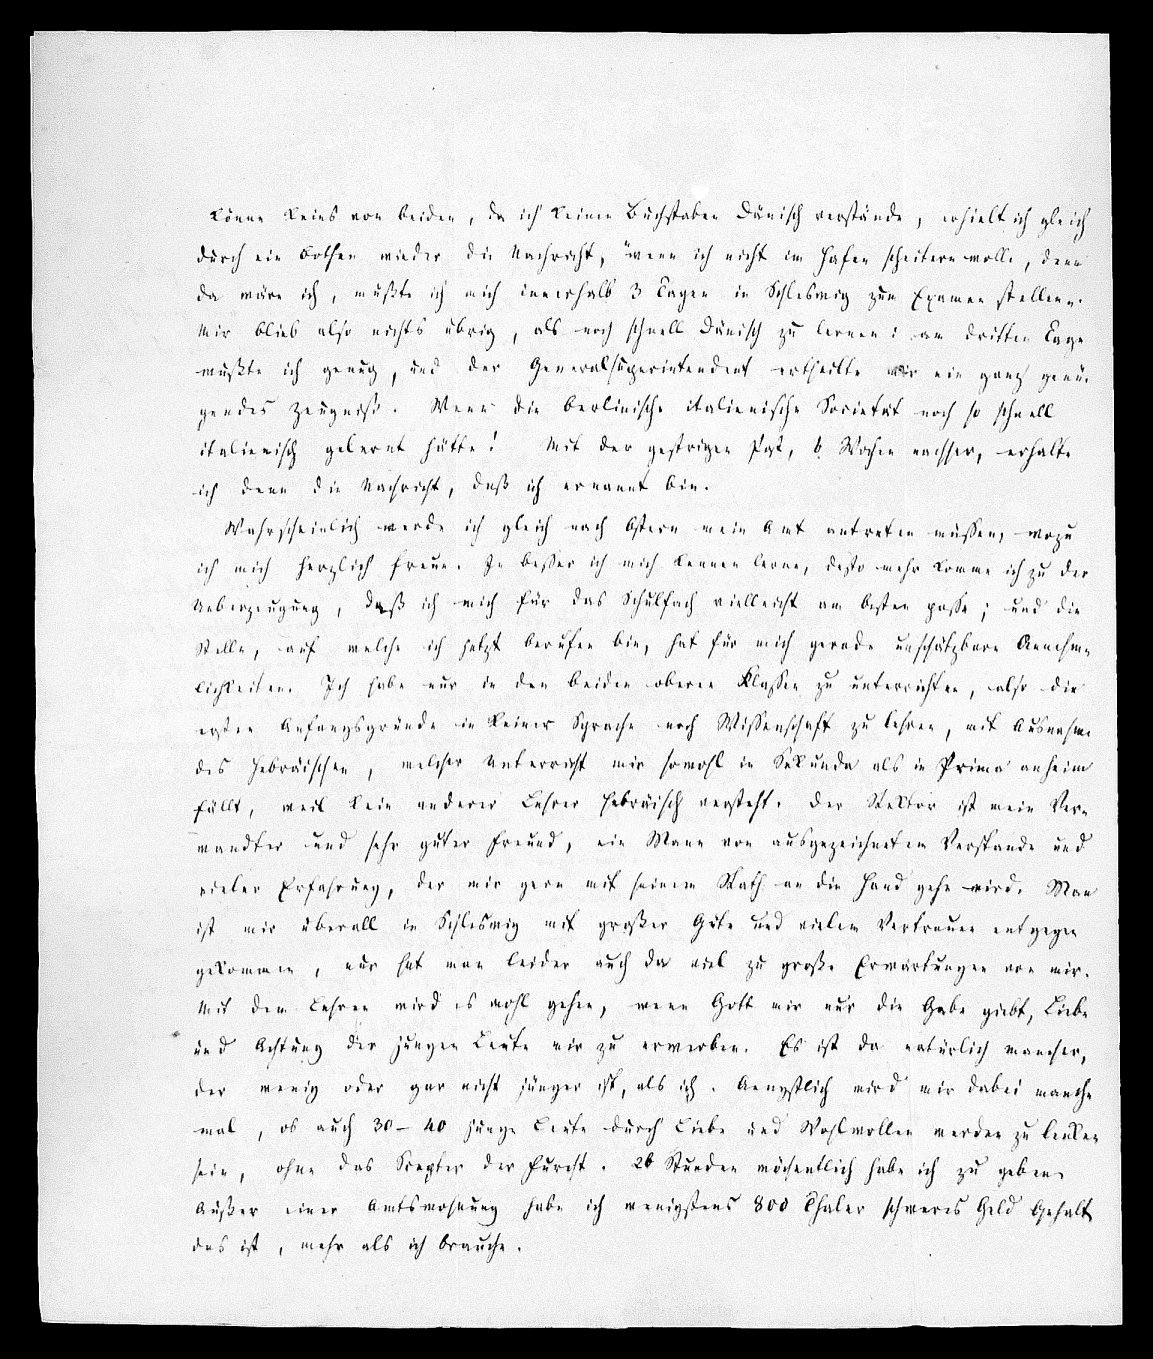 könne keins von beiden, da ich keinen Buchstaben Dänisch verstände, erhielt ich gleich
durch ein Bothen wieder die Nachricht, wenn ich nicht im Hafen scheitern wolle, denn
da wäre ich, müßte ich mich innerhalb 3 Tagen in Schleswig zum Examen stellen.
Mir blieb also nichts übrig, als noch schnell Dänisch zu lernen: am dritten Tage
wußte ich genug, und der Generalsuperintendent ertheilte mir ein ganz genü-
gendes Zeugniß. Wenn die berlinische italienische Societät noch so schnell
italienisch gelernt hätte! Mit der gestrigen Post, 6 Wochen nachher, erhalte
ich denn die Nachricht, daß ich ernannt bin.
Wahrscheinlich werde ich gleich nach Ostern mein Amt antreten müssen, wozu
ich mich herzlich freue. Je besser ich mich kennen lerne, desto mehr komme ich zu der
Ueberzeugung, daß ich mich für das Schulfach vielleicht am besten passe; und die
Stelle, auf welche ich jetzt berufen bin, hat für mich gerade unschätzbare Annehm-
lichkeiten. Ich habe nur in den beiden oberen Klassen zu unterrichten, also die
ersten Anfangsgründe in keiner Sprache noch Wissenschaft zu lehren, mit Ausnahme
des Hebräischen, welcher Unterricht mir sowohl in Sekunda als in Prima anheim
fällt, weil kein anderer Lehrer Hebräisch versteht. Der Rektor ist mein Ver-
wandter und sehr guter Freund, ein Mann von ausgezeichnetem Verstande und
vieler Erfahrung, der mir gern mit seinem Rath an die Hand gehn wird. Man
ist mir überall in Schleswig mit großer Güte und vielem Vertrauen entgegen
gekommen, nur hat man leider auch da viel zu große Erwartungen von mir.
Mit dem Lehren wird es wohl gehen, wenn Gott mir nur die Gabe giebt, Liebe
und Achtung der jungen Leute mir zu erwerben. Es ist da natürlich mancher,
der wenig oder gar nicht jünger ist, als ich. Aengstlich wird mir dabei manch-
mal, ob auch 30–40 junge Leute durch Liebe und Wohlwollen werden zu lenken
sein, ohne das Scepter der Furcht. 26 Stunden wöchentlich habe ich zu geben.
Außer einer Amtswohnung habe ich wenigstens 800 Thaler schweres Geld Gehalt
das ist, mehr als ich brauche.